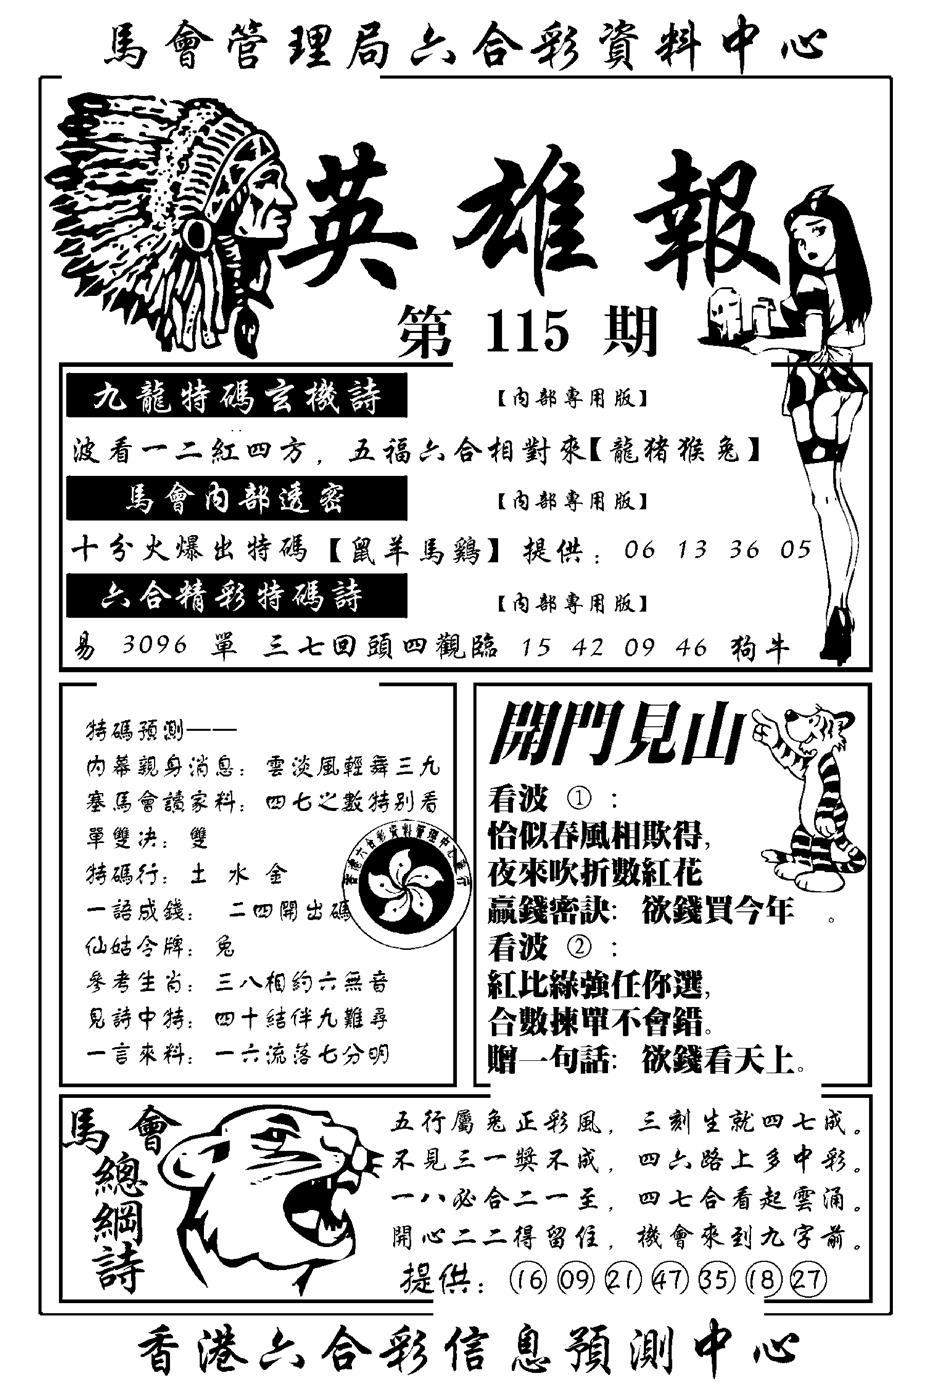 馬會管理局六合彩資料中心
英雄報
第 115 期
九龍特碼玄機詩 【內部專用版】
波看一二紅四方，五福六合相對來【龍猪猴兔】
馬會內部透密 【內部專用版】
十分火爆出特碼【鼠羊馬鷄】提供：06 13 36 05
六合精彩特碼詩 【內部專用版】
易 3096 單 三七回頭四觀臨 15 42 09 46 狗牛
特碼預測——
內幕親身消息：雲淡風輕舞三九
塞馬會讀家料：四七之數特别看
單雙决：雙
特碼行：土 水 金
一語成錢：二四開出碼
仙姑令牌：兔
參考生肖：三八相約六無音
見詩中特：四十結伴九難尋
一言來料：一六流落七分明
香港六合彩資料管理中心發行
開門見山
看波 ①：
恰似春風相欺得，
夜來吹折數紅花
贏錢密訣：欲錢買今年 。
看波 ②：
紅比綠強任你選，
合數揀單不會錯。
贈一句話：欲錢看天上。
馬會
總綱詩
五行屬兔正彩風，三刻生就四七成。
不見三一獎不成，四六路上多中彩。
一八必合二一至，四七合看起雲涌。
開心二二得留住，機會來到九字前。
提供：⑯ 09 ㉑ ㊼ ㉟ ⑱ ㉗
香港六合彩信息預測中心